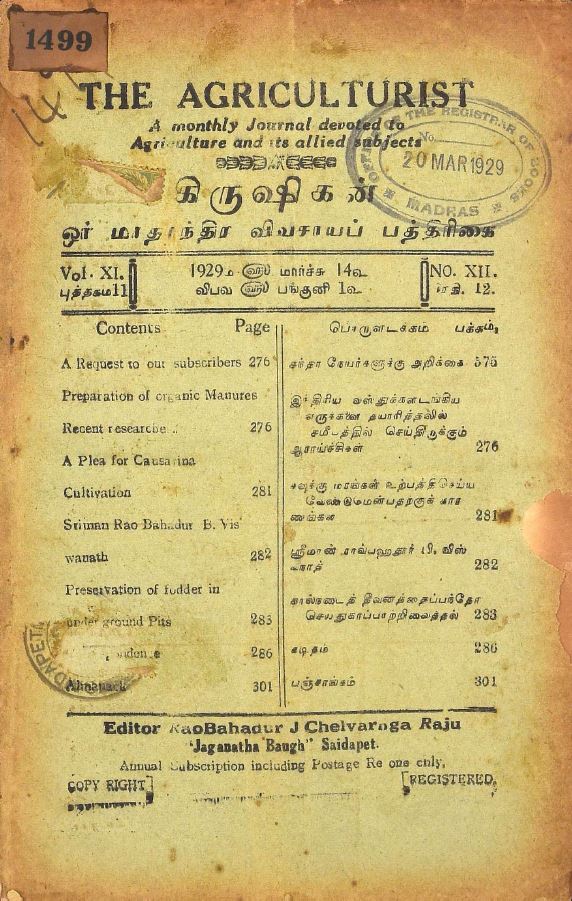 1499
THE AGRICULTURIST
A monthly Journal devoted to
Agriculture and its allied subjects
OF THE REGISTRAR OF BOOKS
No.
20 MAR 1929
MADRAS
கிருஷிகன்
ஓர் மாதாந்திர விவசாயப் பத்திரிகை
Vol. XI.
புத்தகம் 11
1929௵ மார்ச்சு 14௳
விபவ ௵ பங்குனி 1௳
NO. XII.
12.
Contents Page
A Request to our subscribers 276
Preparation of organic Manures
Recent researche
276
A Plea for Causarina
Cultivation 281
Sriman Rao Bahadur B. Vis
wanath 282
Preservation of fodder in
under ground Pits 283
286
Almanack 301
பொருளடக்கம் பக்கம்
சந்தா நேயர்களுக்கு அறிக்கை 575
இந்திரிய வஸ்துக்களடங்கிய
எருக்களை தயாரித்தலில்
சமீபத்தில் செய்திருக்கும்
ஆராய்ச்சிகள் 276
சவுக்கு மரங்கள் உற்பத்திசெய்ய
வேண்டுமென்பதற்குக் கார
ணங்கள 281
ஸ்ரீமான் ராவ்பஹதூர் பி. விஸ்
வநாத் 282
கால்நடைத் தீவனத்தைப்பந்தோ
செய்துகாப்பாற்றிவைத்தல் 283
கடிதம் 286
பஞ்சாங்கம் 301
Editor RaoBahadur J Chelvaranga Raju
"Jaganatha Baugh" Saidapet.
Annual Subscription including Postage Re one only,
COPY RIGHT]
[REGISTERED.